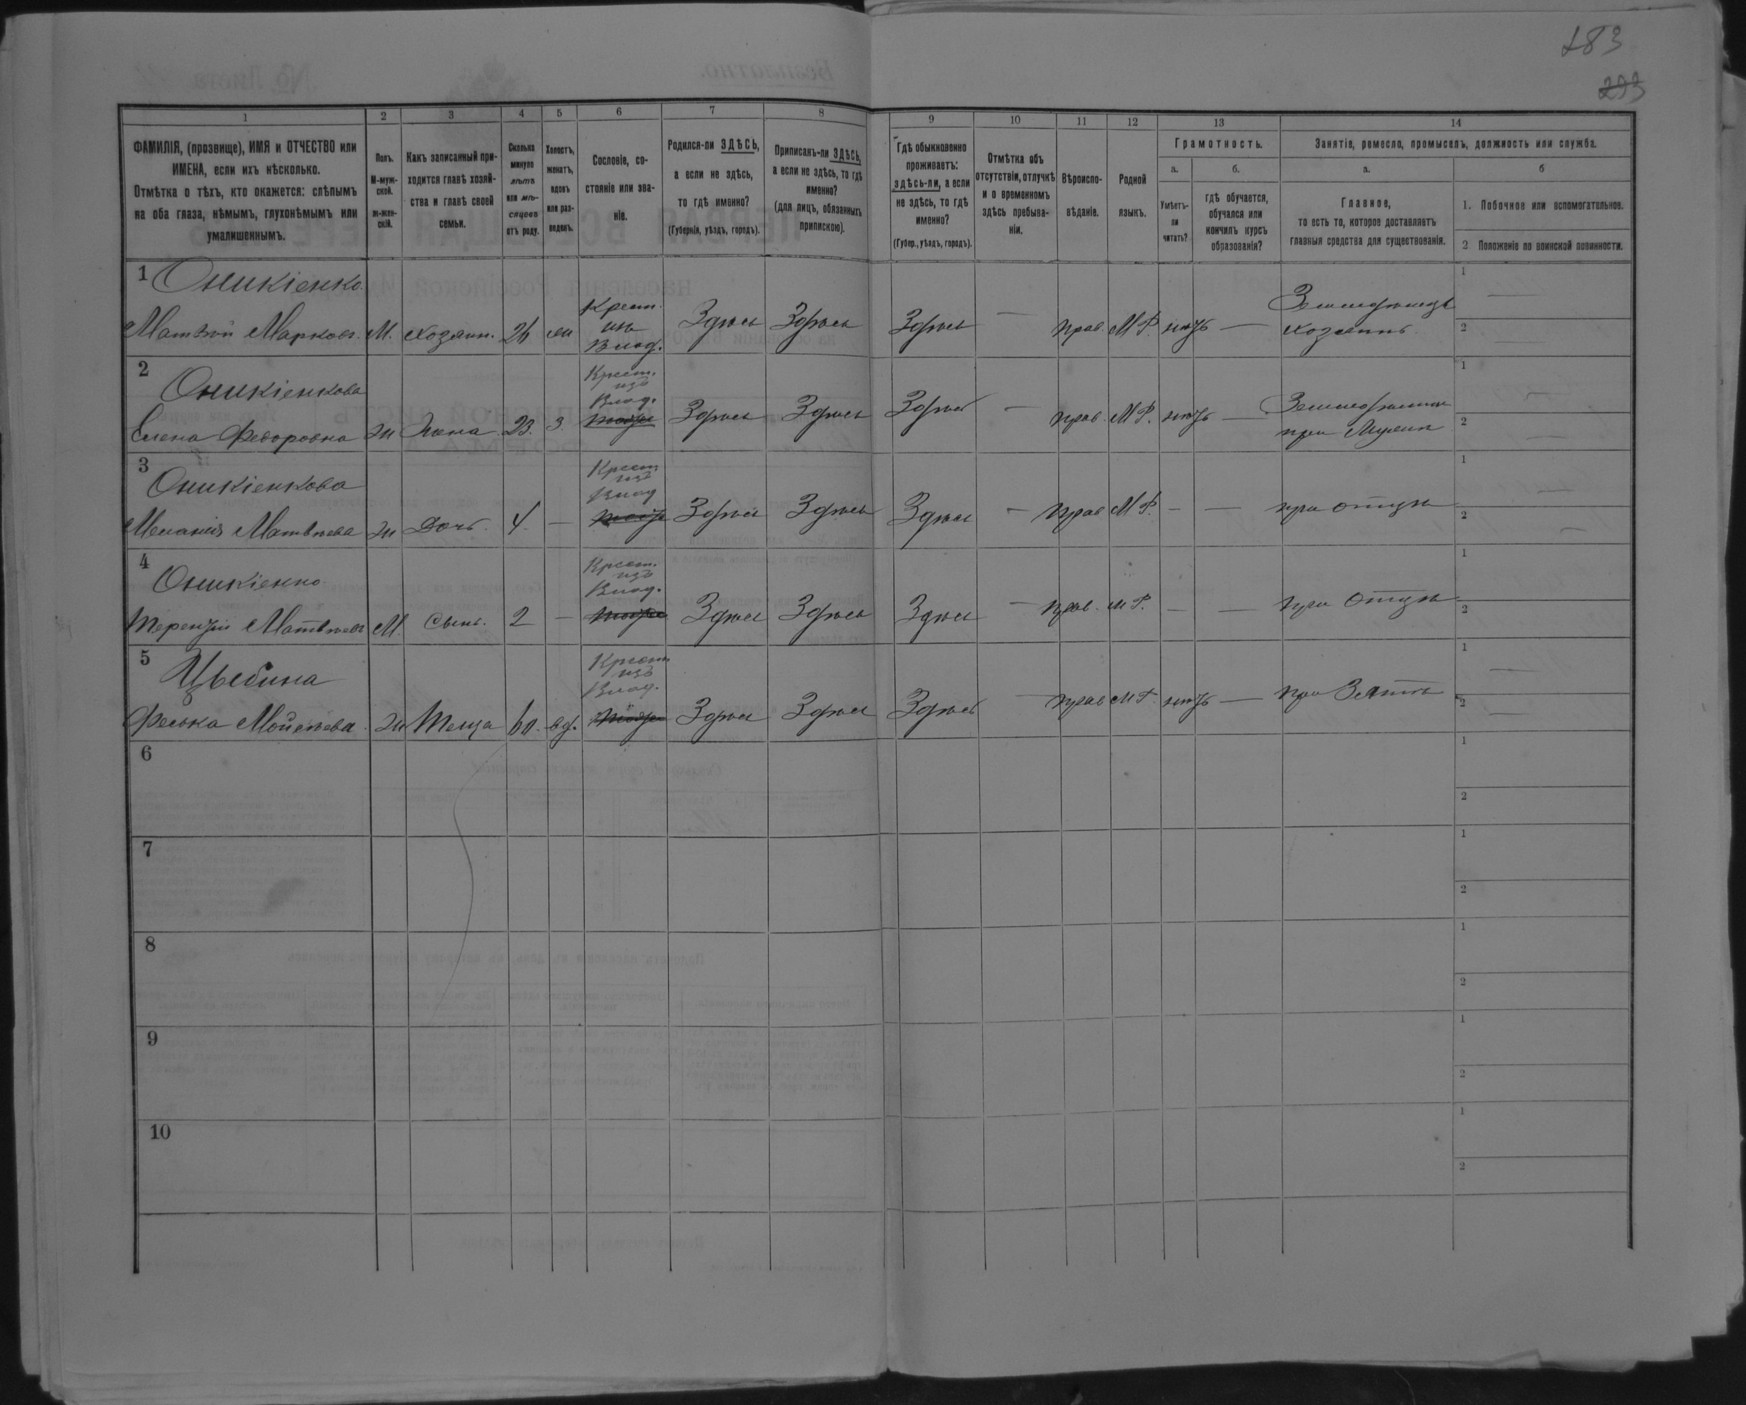 183
293
1 2 3 4 5 6 7 8 9 10 11 12 13 14
ФАМИЛІЯ, (прозвище), ИМЯ и ОТЧЕСТВО или
ИМЕНА, если ихъ нѣсколько.
Отмѣтка о тѣхъ, кто окажется: слѣпымъ
на оба глаза, нѣмымъ, глухонѣмымъ или
умалишеннымъ.
Полъ.
М-муж-
ской.
ж-жен-
скій.
Какъ записанный при-
ходится главѣ хозяй-
ства и главѣ своей
семьи.
Сколько
минуло
лѣтъ
или мѣ-
сяцевъ
отъ роду.
Холостъ,
женатъ,
вдовъ
или раз-
веденъ.
Сословіе, со-
стояніе или зва-
ніе.
Родился-ли ЗДѢСЬ,
а если не здѣсь,
то гдѣ именно?
(Губернія, уѣздъ, городъ).
Приписанъ-ли ЗДѢСЬ,
а если не здѣсь, то гдѣ
именно?
(для лицъ, обязанныхъ
припискою).
Гдѣ обыкновенно
проживаетъ:
здѣсь-ли, а если
не здѣсь, то гдѣ
именно?
(Губер., уѣздъ, городъ).
Отмѣтка объ
отсутствіи, отлучкѣ
и о временномъ
здѣсь пребыва-
ніи.
Вѣроиспо-
вѣданіе.
Родной
языкъ.
Грамотность.
а.
Умѣетъ-
ли
читать?
б.
гдѣ обучается,
обучался или
кончилъ курсъ
образованія?
Занятіе, ремесло, промыселъ, должность или служба.
а.
Главное,
то есть то, которое доставляетъ
главныя средства для существованія.
б
1. Побочное или вспомогательное.
2 Положеніе по воинской повинности.
1 Оникіенко
Матвѣй Марковъ. М. хозяин. 26 жи Крест. изъ Влад. Здѣсь Здѣсь Здѣсь — прав. М.Р. нѣтъ — Земледѣлецъ хозяинъ
1 —
2 —
2 Оникіенкова
Елена Федоровна ж Жена 23. з Крест. изъ Влад. Здѣсь Здѣсь Здѣсь — прав. М.Р. нѣтъ — при Мужѣ
1 —
2 —
3 Оникіенкова
Меланія Матвѣева ж Дочь. 4. — Крест. изъ Влад Здѣсь Здѣсь Здѣсь — прав М.Р. — — при отцѣ
1 —
2 —
4 Оникіенко
Терентій Матвѣевъ М. Сынъ. 2 — Крест. изъ Влад. Здѣсь Здѣсь Здѣсь — прав. М.Р. — — при отцѣ
1
2
5 Цыбина
Феська Мойсѣева ж Теща 60. вд. Крест. изъ Влад. Здѣсь Здѣсь Здѣсь — прав М.Р. нѣтъ — при Зятѣ
1 —
2 —
6
1
2
7
1
2
8
1
2
9
1
2
10
1
2